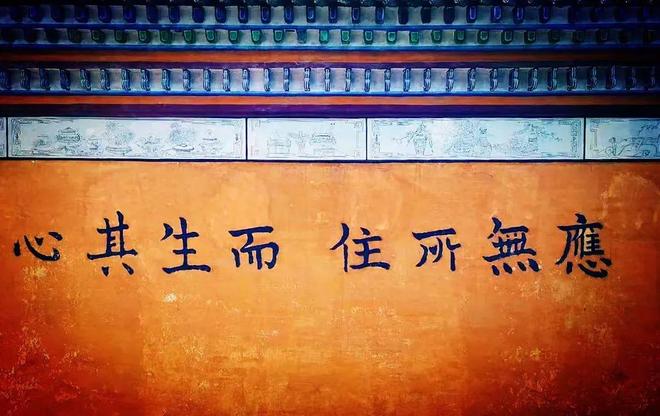 應無所住而生其心